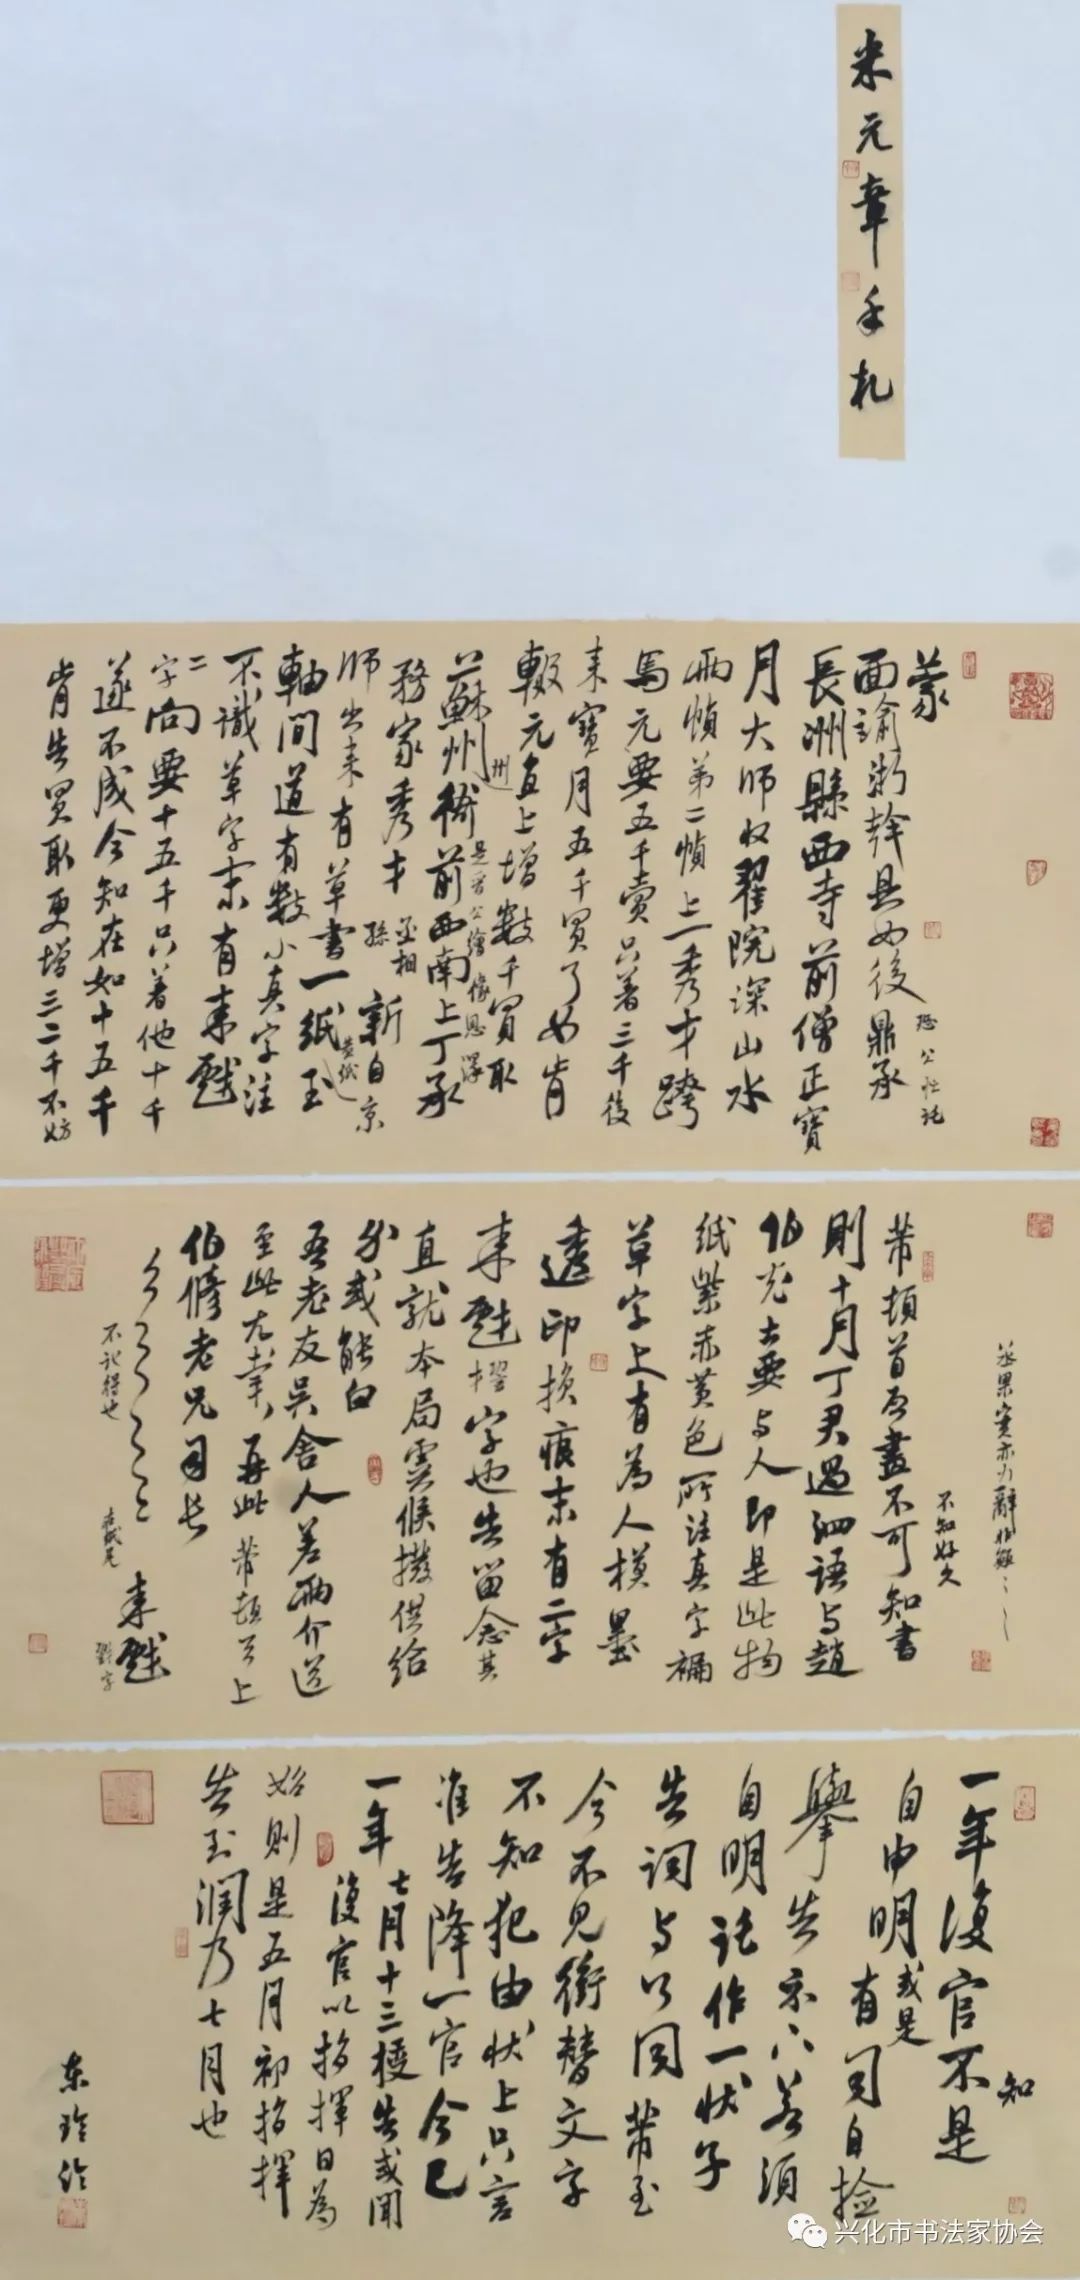 米元章手札
蒙
面諭浙幹具如後
恐公性訖
長洲縣西寺前僧正寶
月大師收翟院深山水
兩幀第二幀上一秀才跨
馬元要五千賣只著三千後
來寶月五千買了如肯
輟元直上增數千買取
州
一蘇州衙前西南上丁承
是晉公繪像恩澤
務家秀才
丞相
孫
新自京
師出來有草書一紙
黄紙
玉
軸間道有數小真字注
不識草字末有来戲
二字向要十五千只著他十千
遂不成今知在如十五千
肯告買取更增三二千不妨
丞果實亦力辭
不知好久
芾頓首再啟不可知書
則十月丁君過泗語與趙
伯充云要與人即是此物
紙紫赤黄色所注真字褊
草字上有為人模墨
透印損痕末有二字
来戲
字也告留念其
直就本局雲候撥供給
分或能白
吾老友吳舍人差兩介送
至此尤幸再此芾頓首上
伯修老兄司長
不記得也
来戲
一年復官不是
知
自申明或是
有司自撿
舉告示下若須
自明託作一狀子
告詞與公同芾至
今不見衝替文字
不知犯由狀上只言
准告降一官今已
一年七月十三授告或聞
復官以指揮日為
始則是五月初指揮
告到潤乃七月也
兴化市书法家协会